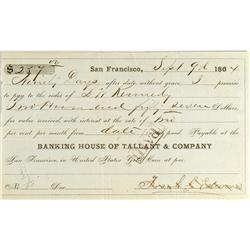 $257 00 San Francisco, Sept 9th 1864
Ninety Days after date, without grace, I promise
to pay to the order of L W Kennedy
Two Hundred fifty Seven Dollars,
for value received with interest at the rate of two
per cent per month from date until paid Payable at the
BANKING HOUSE OF TALLANT & COMPANY
San Francisco, in United States Gold Coin at par.
No. Due